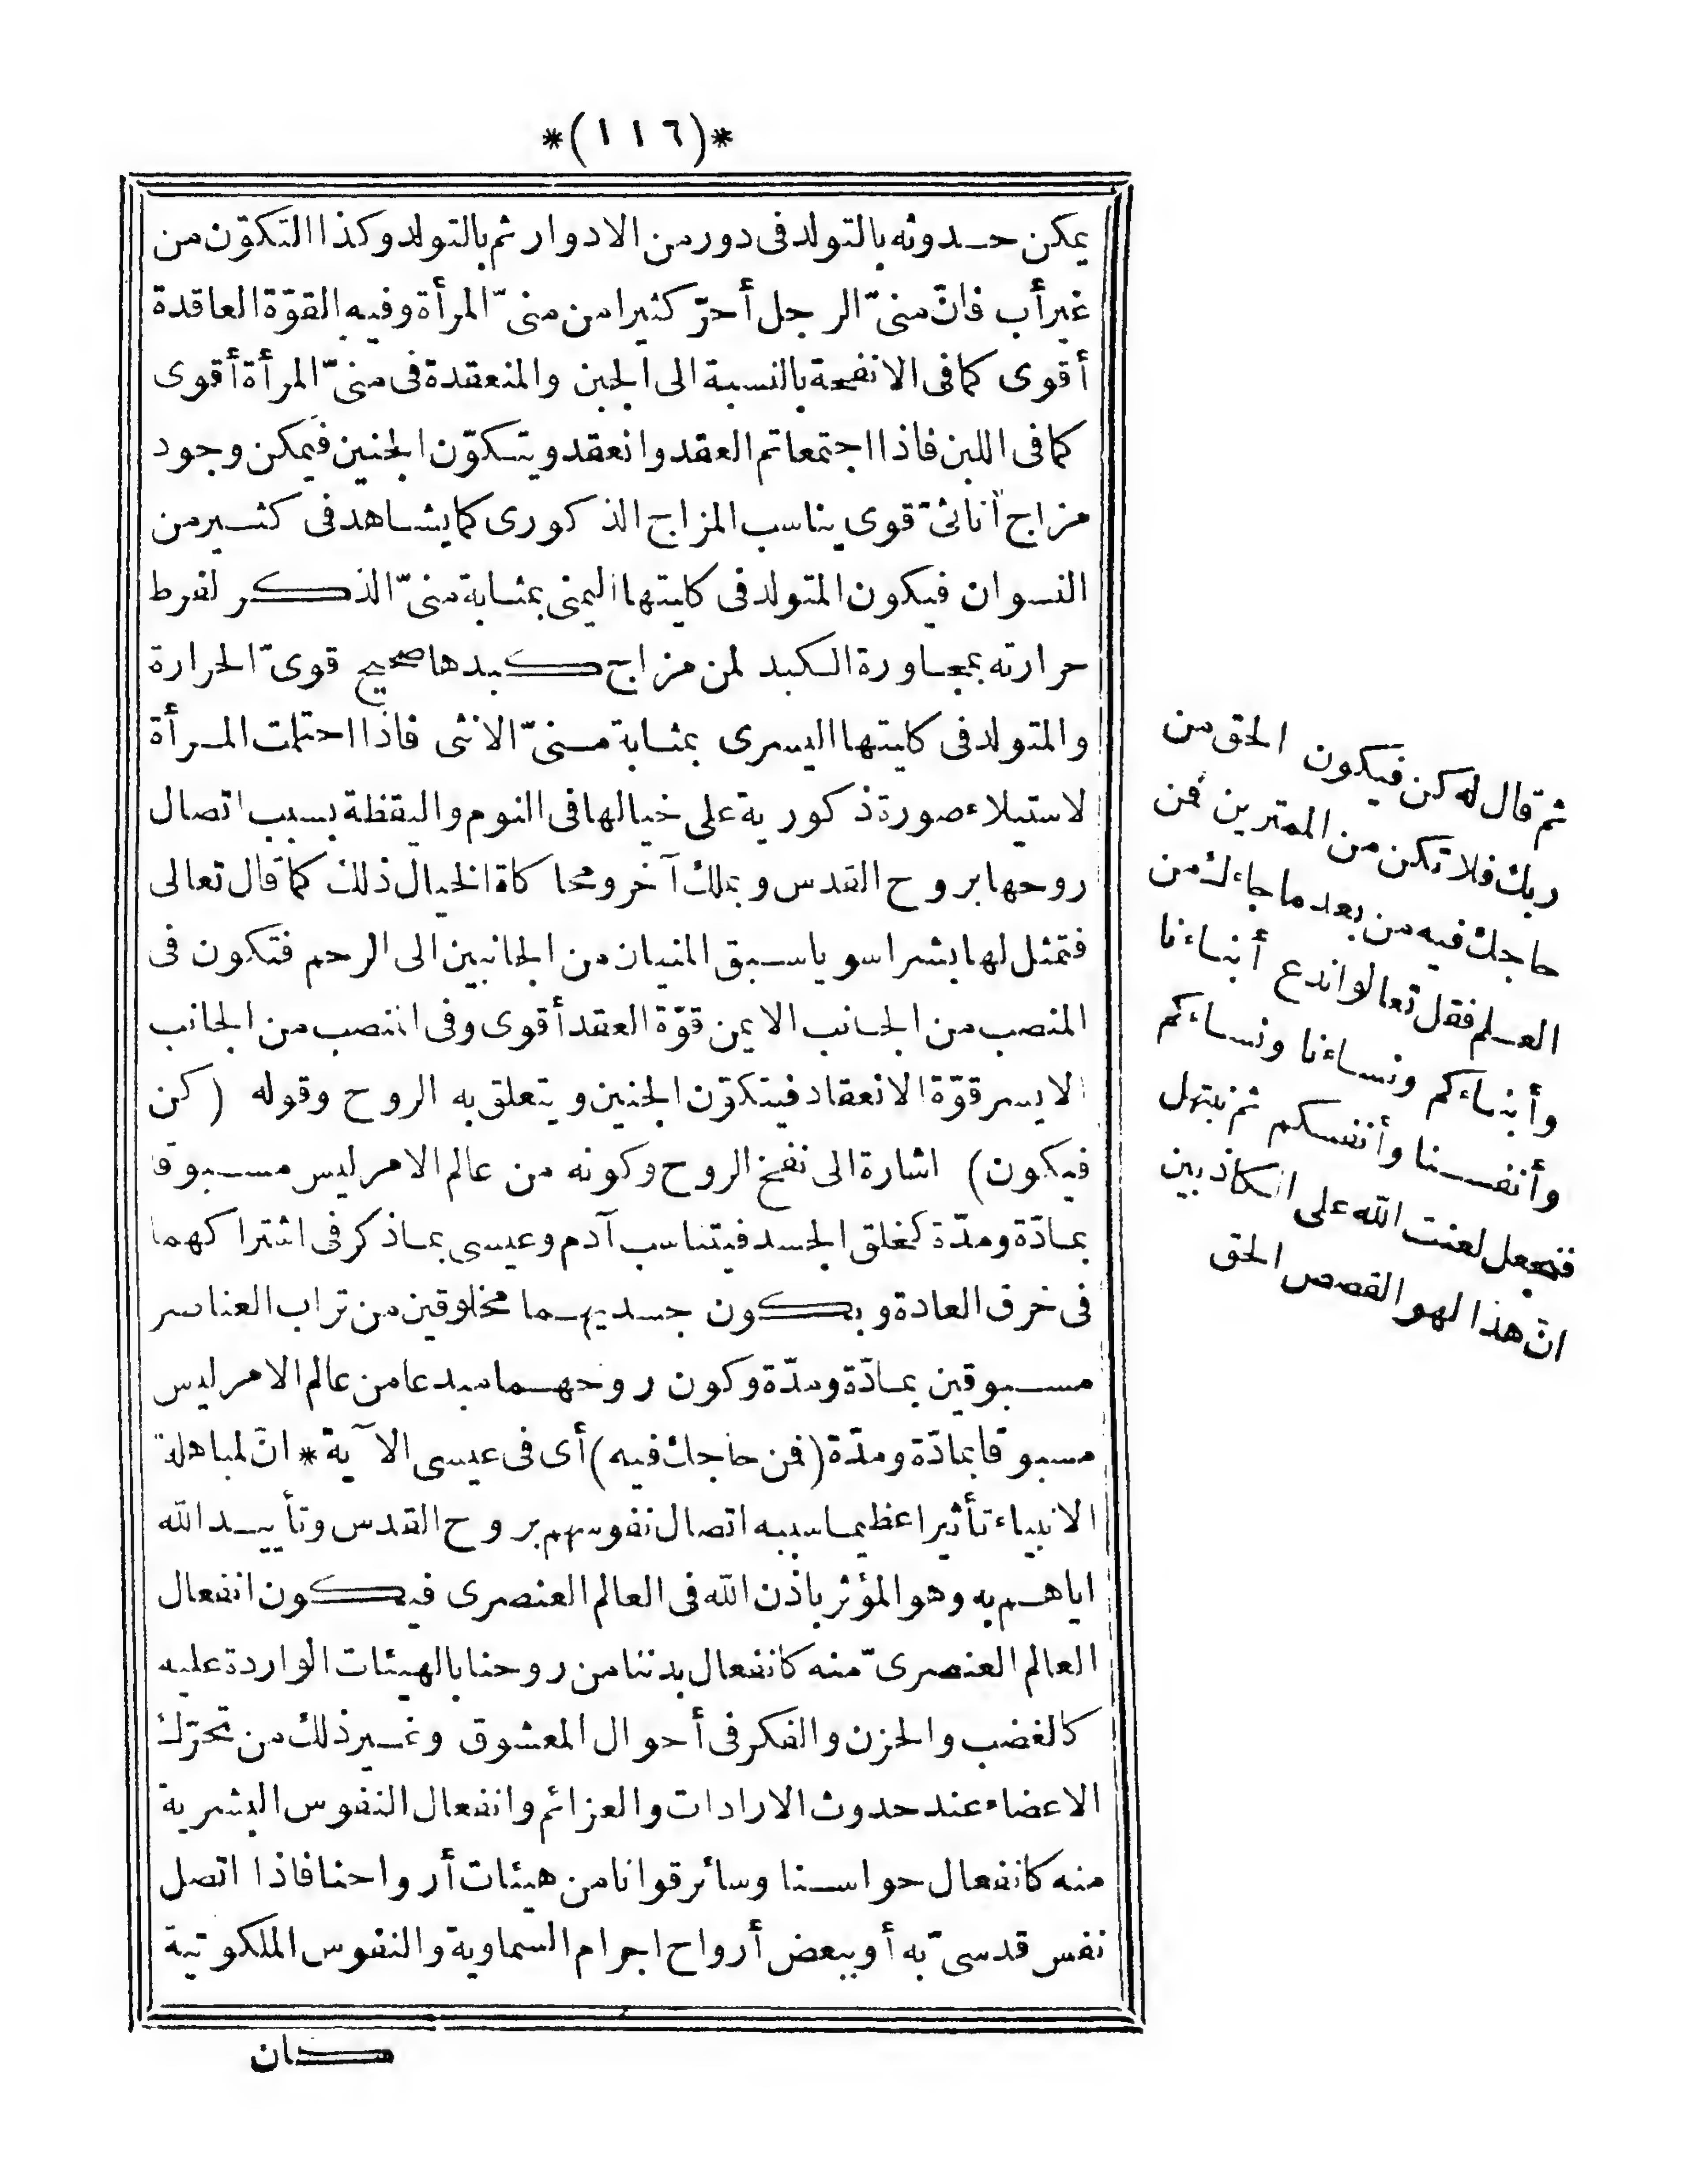 *(١١٦)*
يمكن حدوثه بالتولد فى دور من الادوار ثم بالتولد وكذا التكوّن من
غير أب فانّ منىّ الرجل أحرّ كثيرا من منىّ المرأة وفيه القوّة العاقدة
أقوى كما فى الانفحة بالنسبة الى الجبن والمنعقدة فى منىّ المرأة أقوى
كما فى اللبن فاذا اجتمعا تم العقد وانعقد ويتكوّن الجنين فيمكن وجود
مزاج أناثىّ قوى يناسب المزاج الذكورى كما يشاهد فى كثير من
النسوان فيكون المتولد فى كليتها اليمنى بمثابة منىّ الذكر لفرط
حرارته بمجاورة الكبد لمن مزاج كبدها صحيح قوىّ الحرارة
والمتولد فى كليتها اليسرى بمثابة منىّ الانثى فاذا احتلمت المرأة
لاستيلاء صورة ذكورية على خيالها فى النوم واليقظة بسبب اتصال
روحها بروح القدس وبملك آخر ومحاكاة الخيال ذلك كما قال تعالى
فتمثل لها بشرا سويا سبق المنيان من الجانبين الى الرحم فتكون فى
المنصب من الجانب الايمن قوّة العقد أقوى وفى المنصب من الجانب
الايسر قوّة الانعقاد فيتكوّن الجنين ويتعلق به الروح وقوله (كن
فيكون) اشارة الى نفخ الروح وكونه من عالم الامر ليس مسبوقا
بمادّة ومدّة كخلق الجسد فيتناسب آدم وعيسى بما ذكر فى اشتراكهما
فى خرق العادة وبكون جسديهما مخلوقين من تراب العناصر
مسبوقين بمادّة ومدّة وكون روحهما مبدعا من عالم الامر ليس
مسبوقا بمادّة ومدّة (فمن حاجك فيه) أى فى عيسى الآية * انّ لمباهلة
الانبياء تأثيرا عظيما سببه اتصال نفوسهم بروح القدس وتأييد الله
اياهم به وهو المؤثر باذن الله فى العالم العنصرى فيكون انفعال
العالم العنصرىّ منه كانفعال بدننا من روحنا بالهيئات الواردة عليه
كالغضب والحزن والفكر فى أحوال المعشوق وغير ذلك من تحرّك
الاعضاء عند حدوث الارادات والعزائم وانفعال النفوس البشرية
منه كانفعال حواسنا وسائر قوانا من هيئات أرواحنا فاذا اتصل
نفس قدسىّ به أو ببعض أرواح اجرام السماوية والنفوس الملكوتية
كان
ثم قال له كن فيكون الحق من
ربك فلا تكن من الممترين فمن
حاجك فيه من بعد ما جاءك من
العلم فقل تعالوا ندع أبناءنا
وأبناءكم ونساءنا ونساءكم
وأنفسنا وأنفسكم ثم نبتهل
فنجعل لعنت الله على الكاذبين
انّ هذا لهو القصص الحق